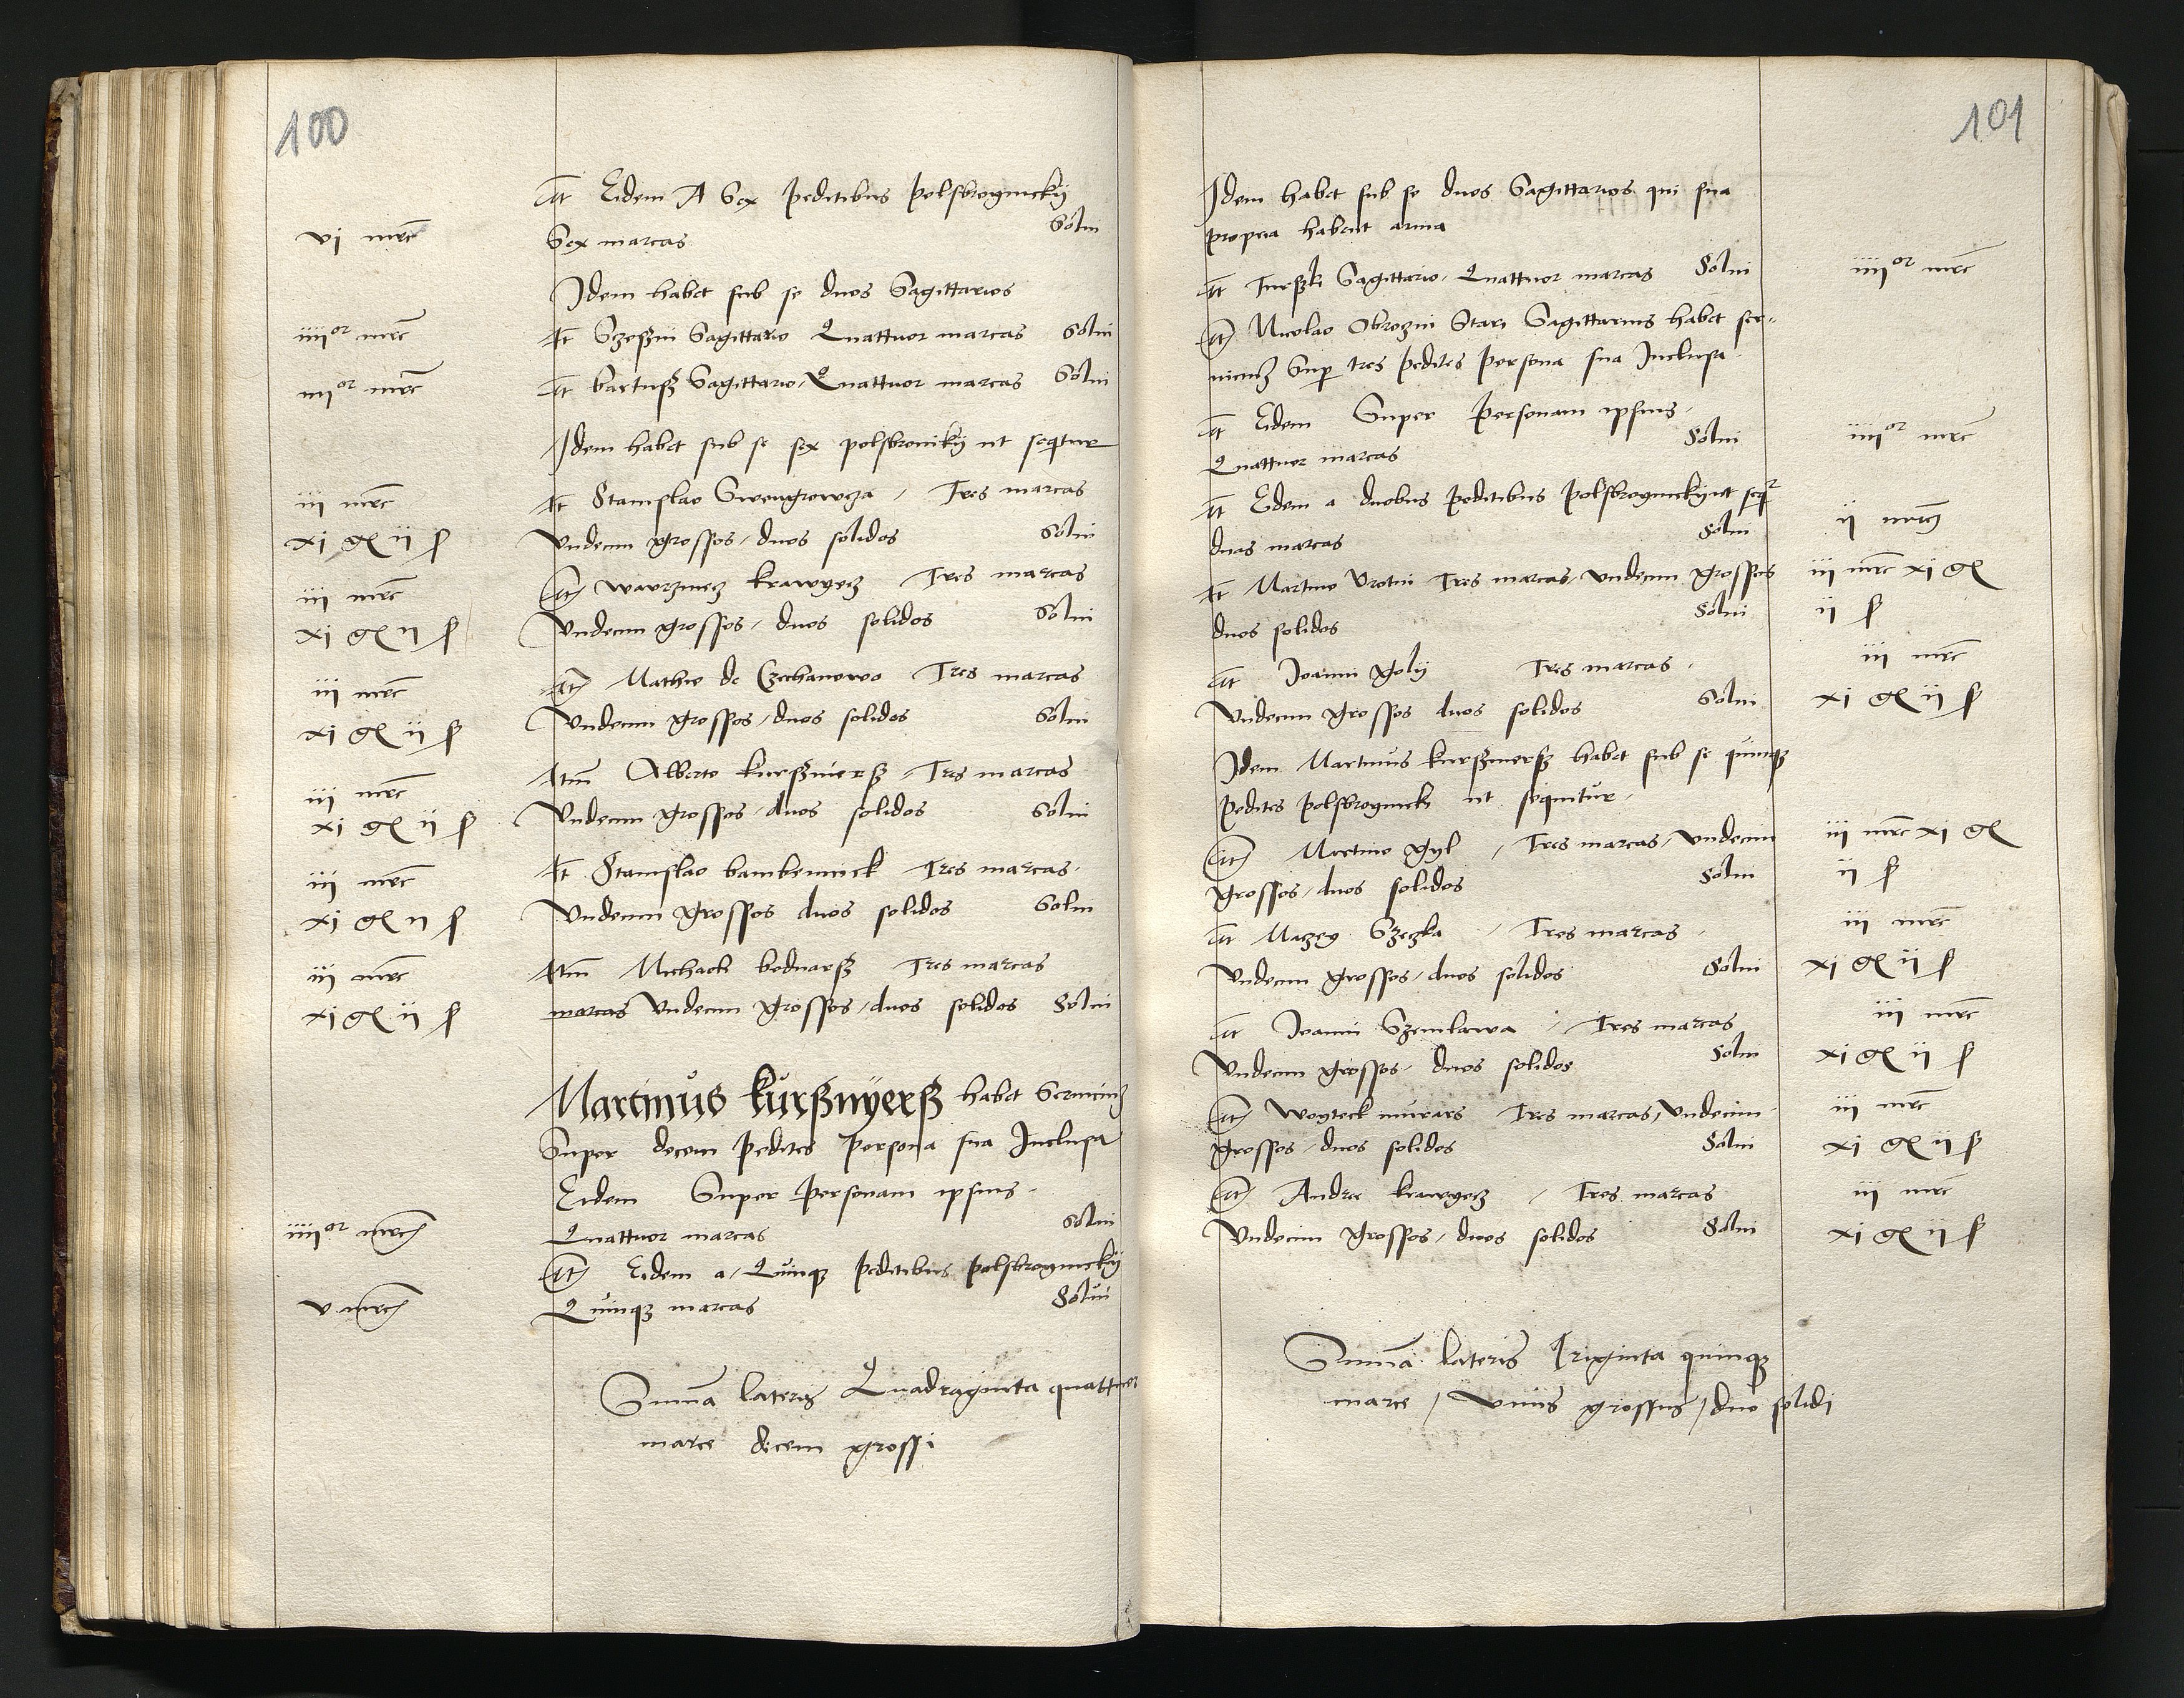 100
It Eidem A Sex peditibus polsbrognickÿ
vi mrc Sex marcas Solui
Idem habet sub se duos Sagittarios
iiiior mrc It Szeszni Sagittario Quattuor marcas Solui
iiiior mrc It bartusz Sagittario, Quattuor marcas Solui
Idem habet sub se sex polsbronikÿ ut sequtur
iii mrc It Stanislao Swengrowcza / Tres marcas
xi g ii s Vndecim grossos, duos solidos Solui
iii mrc It wavrzinecz krawyecz Tres marcas
xi g ii s Vndecim grossos, duos solidos Solui
iii mrc It Mathie de Czechanowo Tres marcas
xi g ii s Vndecim grossos, duos solidos Solui
iii mrc Itm Alberto kursznierz, Tres marcas
xi g ii s Vndecim grossos, duos solidos Solui
iii mrc It Stanislao bambennick Tres marcas
xi g ii s Vndecim grossos duos solidos Solui
iii mrc Itm Michaeli bednarsz Tres marcas
xi g ii s marcas Vndecim grossos, duos solidos Solui
Martinus kursznyersz habet Seruiciu
Super decem pedites Persona sua Inclusa
Eidem Super Personam ipsius
iiiior mrc Quattuor marcas Solui
It Eidem a, Quinqz peditibus polsbrognickÿ
v mrc Quinqz marcas Solui
Summa lateris Quadraginta quattuor
marce decem grossi
101
Idem habet sub se duos Sagittarios qui sua
propria habent arma
It Turszki Sagittario, Quattuor marcas Solui iiiior mrc
It Nicolao Obrozni Stari Sagittarius habet ser-
uiciu Sup tres pedites Persona sua Inclusa
It Eidem Super Personam ipsius
Quattuor marcas Solui iiiior mrc
It Eidem a duobus peditibus polsbrognickÿ ut seqr
duas marcas Solui ii mrc
It Martino Vrotni Tres marcas, Vndecim grossos iii mrc xi g
duos solidos Solui ii s
It Joanni golÿ Tres marcas iii mrc
Vndecim grossos duos solidos Solui xi g ii s
Idem Martinus kursznersz habet sub se quinqz
Pedites polsbrognicki ut sequitur
It Martino gyl / Tres marcas, Vndecim iii mrc xi g
grossos, duos solidos Solui ii s
It Maczey Szczka / Tres marcas iii mrc
Vndecim grossos, duos solidos Solui xi g ii s
It Joanni Szemlawa / Tres marcas iii mrc
Vndecim grossos, duos solidos Solui xi g ii s
It Woyteck murars Tres marcas, Vndecim iii mrc
grossos, duos solidos Solui xi g ii s
It Andree krawyecz / Tres marcas iii mrc
Vndecim grossos, duos solidos Solui xi g ii s
Summa lateris Triginta quinqz
marce / Vnus grossus / duo solidi